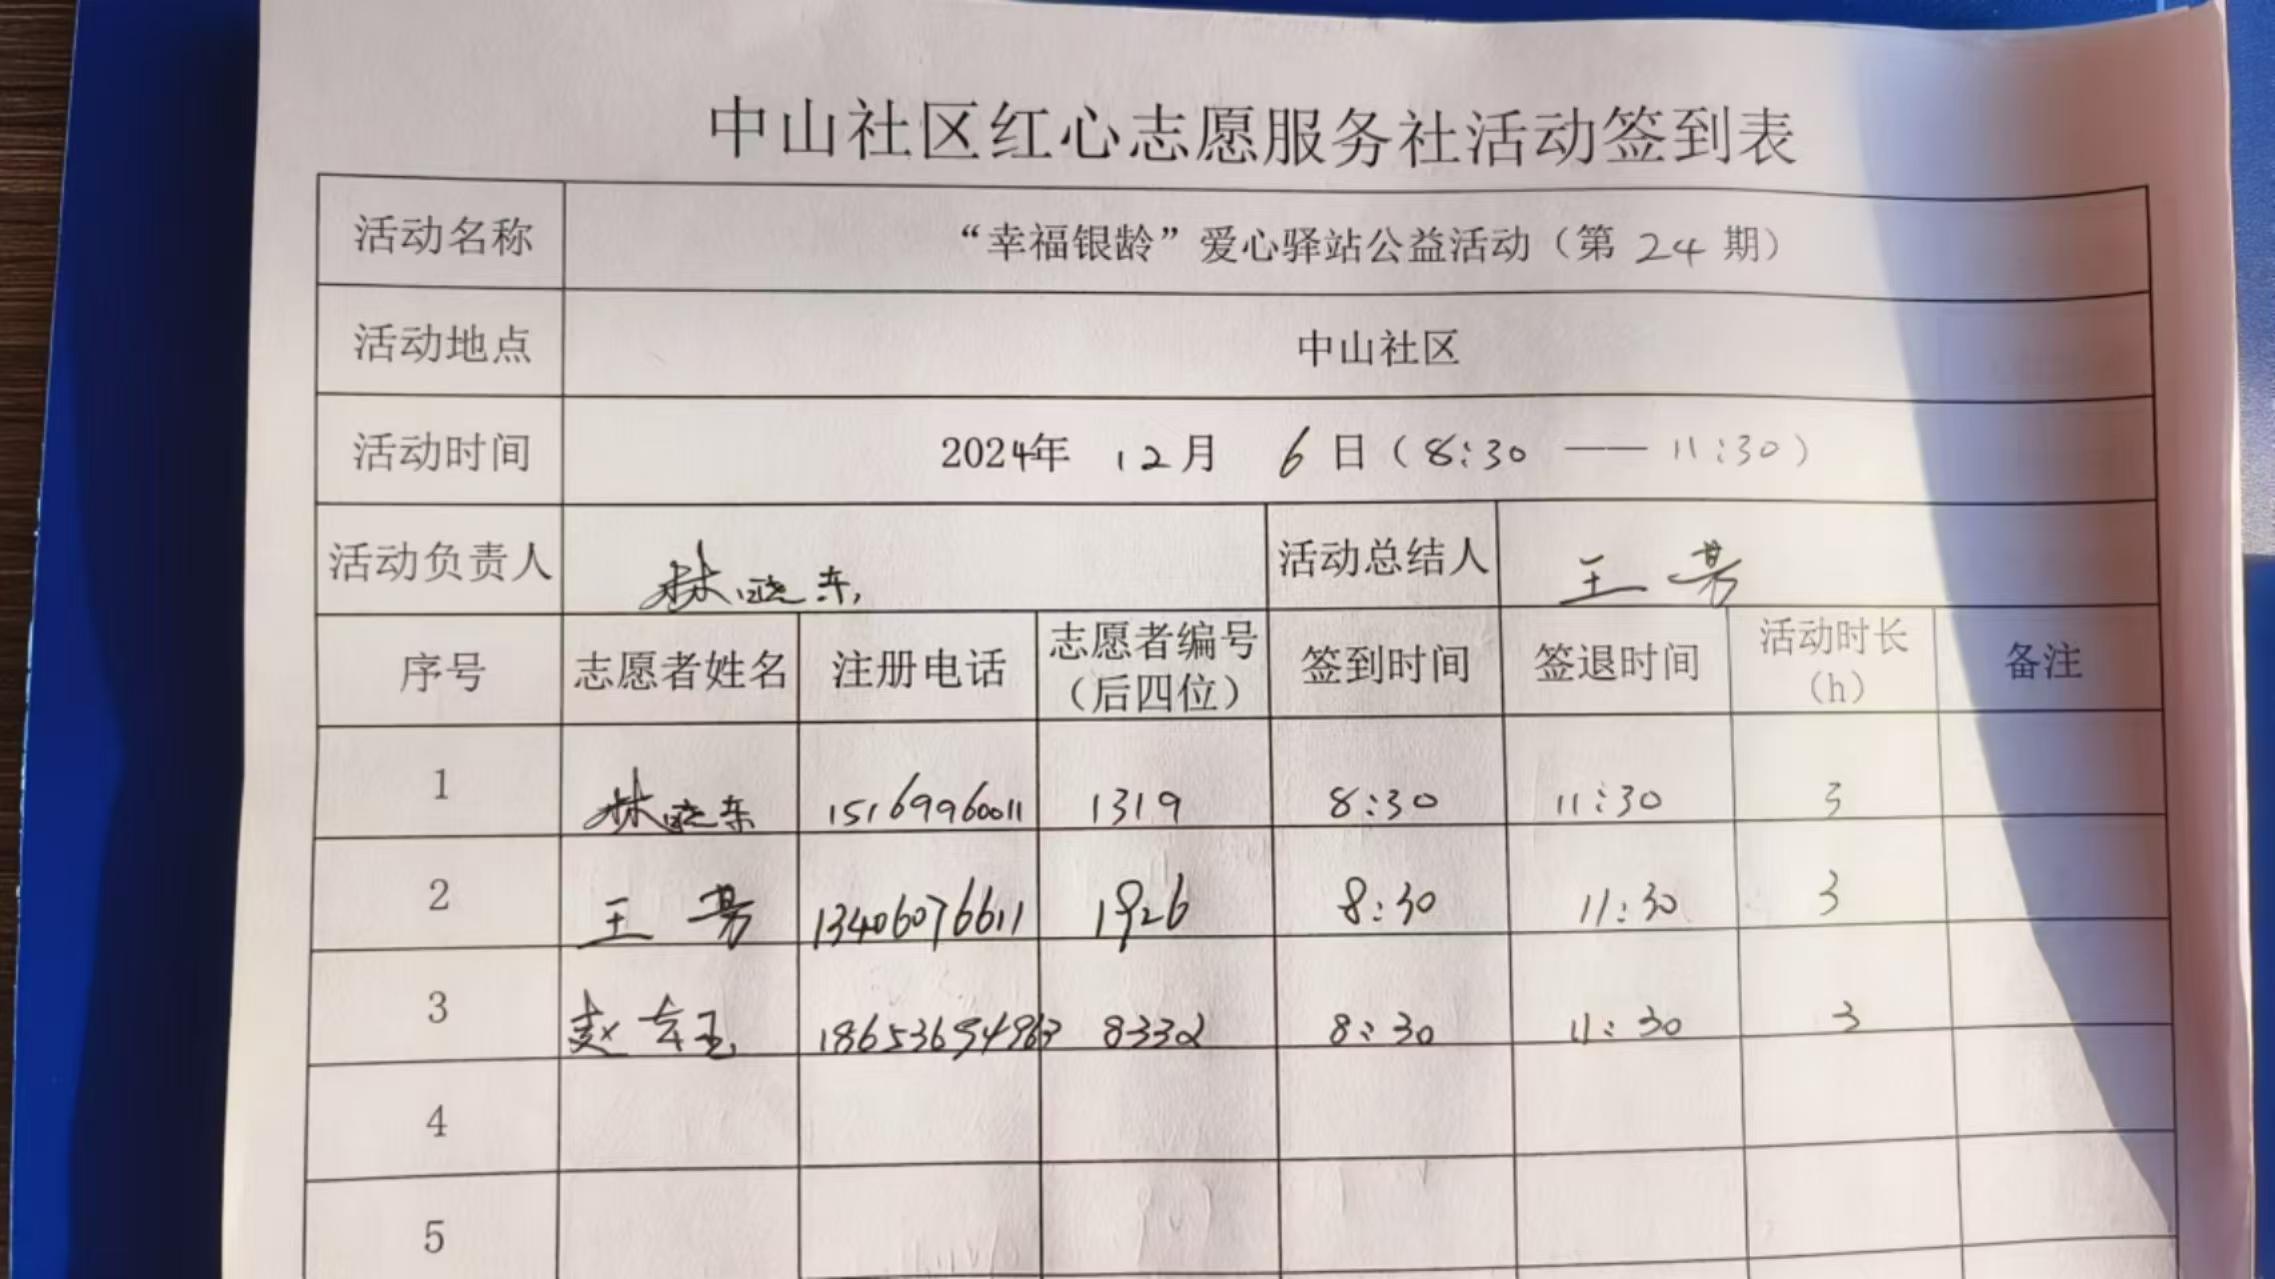 中山社区红心志愿服务社活动签到表
活动名称 “幸福银龄”爱心驿站公益活动（第 24 期）
活动地点 中山社区
活动时间 2024年 12月 6日（8:30 —— 11:30）
活动负责人 林晓东 活动总结人 王
序号 志愿者姓名 注册电话 志愿者编号（后四位） 签到时间 签退时间 活动时长（h） 备注
1 林晓东 15169960011 1319 8:30 11:30 3
2 王 13406076611 1926 8:30 11:30 3
3 赵 玉 18653694963 8332 8:30 11:30 3
4
5